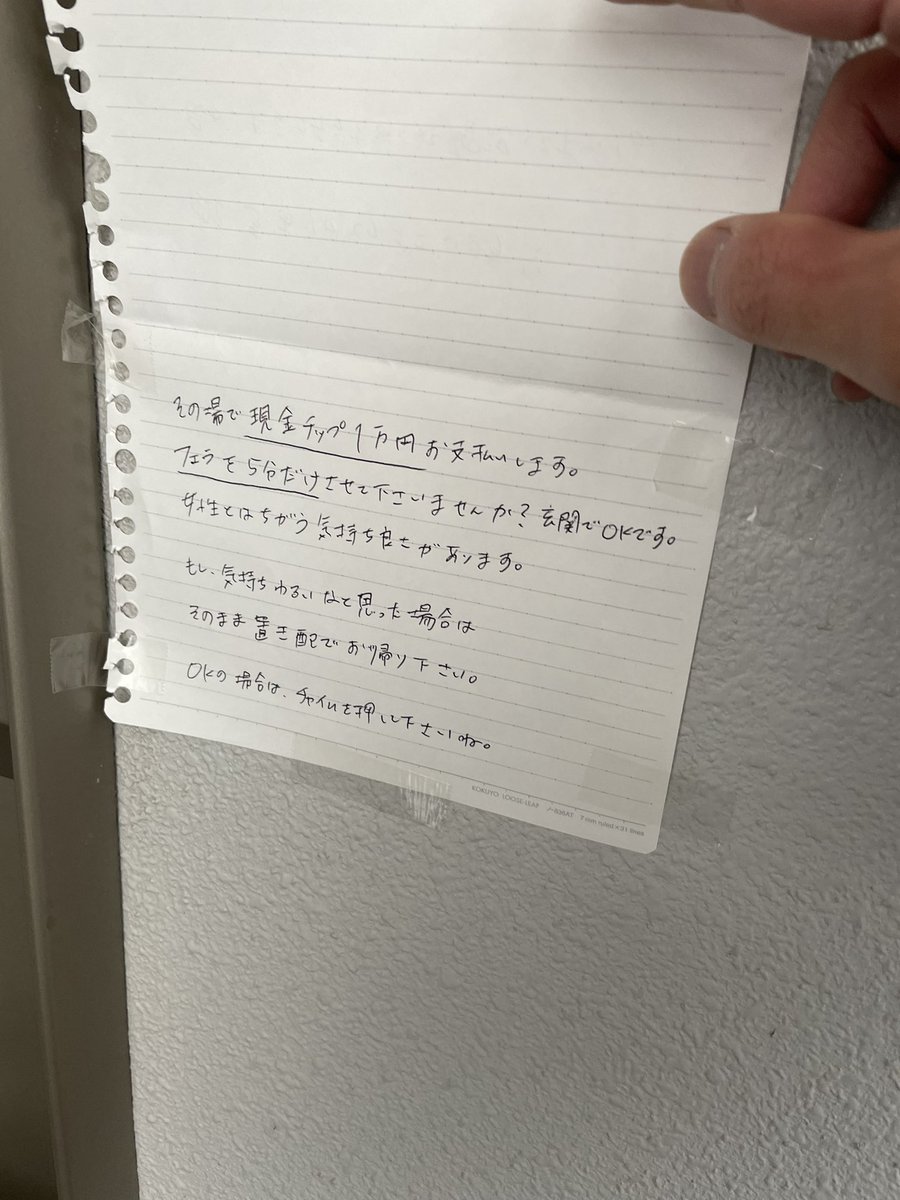 その場で現金チップ1万円お支払いします。
フェラを5分だけさせて下さいませんか?玄関でOKです。
女性とはちがう気持ち良さがあります。
もし、気持ちわるいなと思った場合は
そのまま置き配でお帰り下さい。
OKの場合は、チャイムを押して下さいね。
KOKUYO LOOSE-LEAF ノ-836AT 7 mm ruled×31 lines